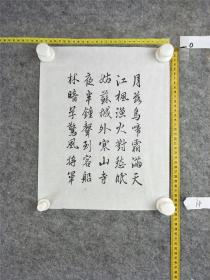 月落烏啼霜滿天
江楓漁火對愁眠
姑蘇城外寒山寺
夜半鐘聲到客船
林暗草驚風將軍